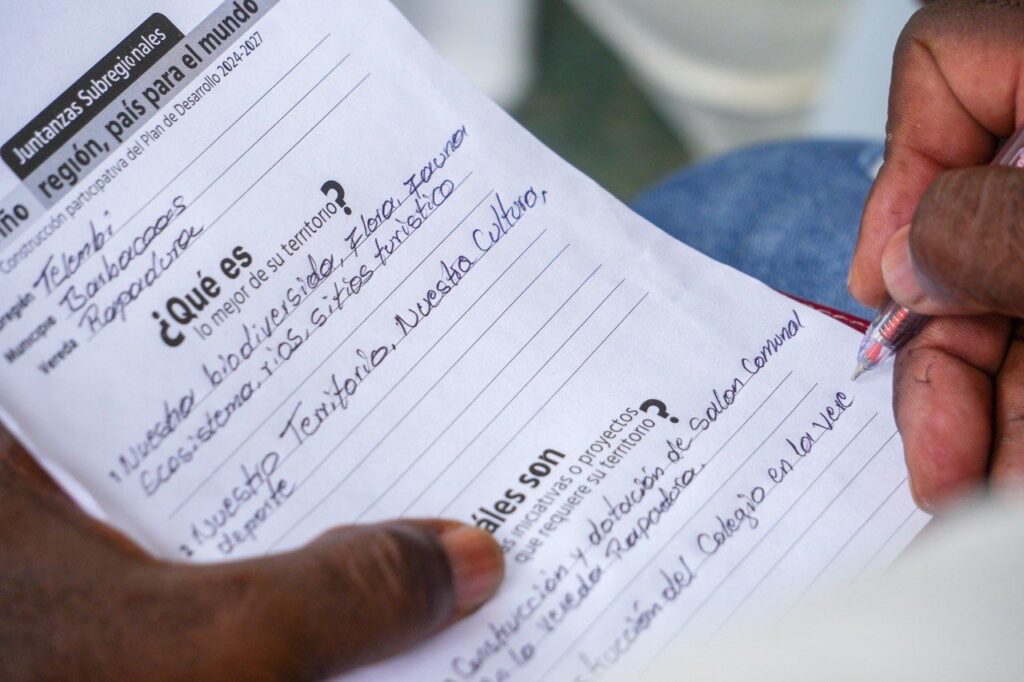 Juntanzas Subregionales
región, país para el mundo
Construcción participativa del Plan de Desarrollo 2024-2027
Telembi
Municipio Barbacoas
Vereda Rapadura
¿Qué es
lo mejor de su territorio?
1 Nuestra biodiversida, Flora, Fauna,
Ecosistema, rios, sitios turístico
2 Nuestro Territorio, Nuestra Cultura,
deporte
iniciativas o proyectos
que requiere su territorio?
Construcción y dotación de Salon Comunal
vereda Rapadura.
del Colegio en la vere